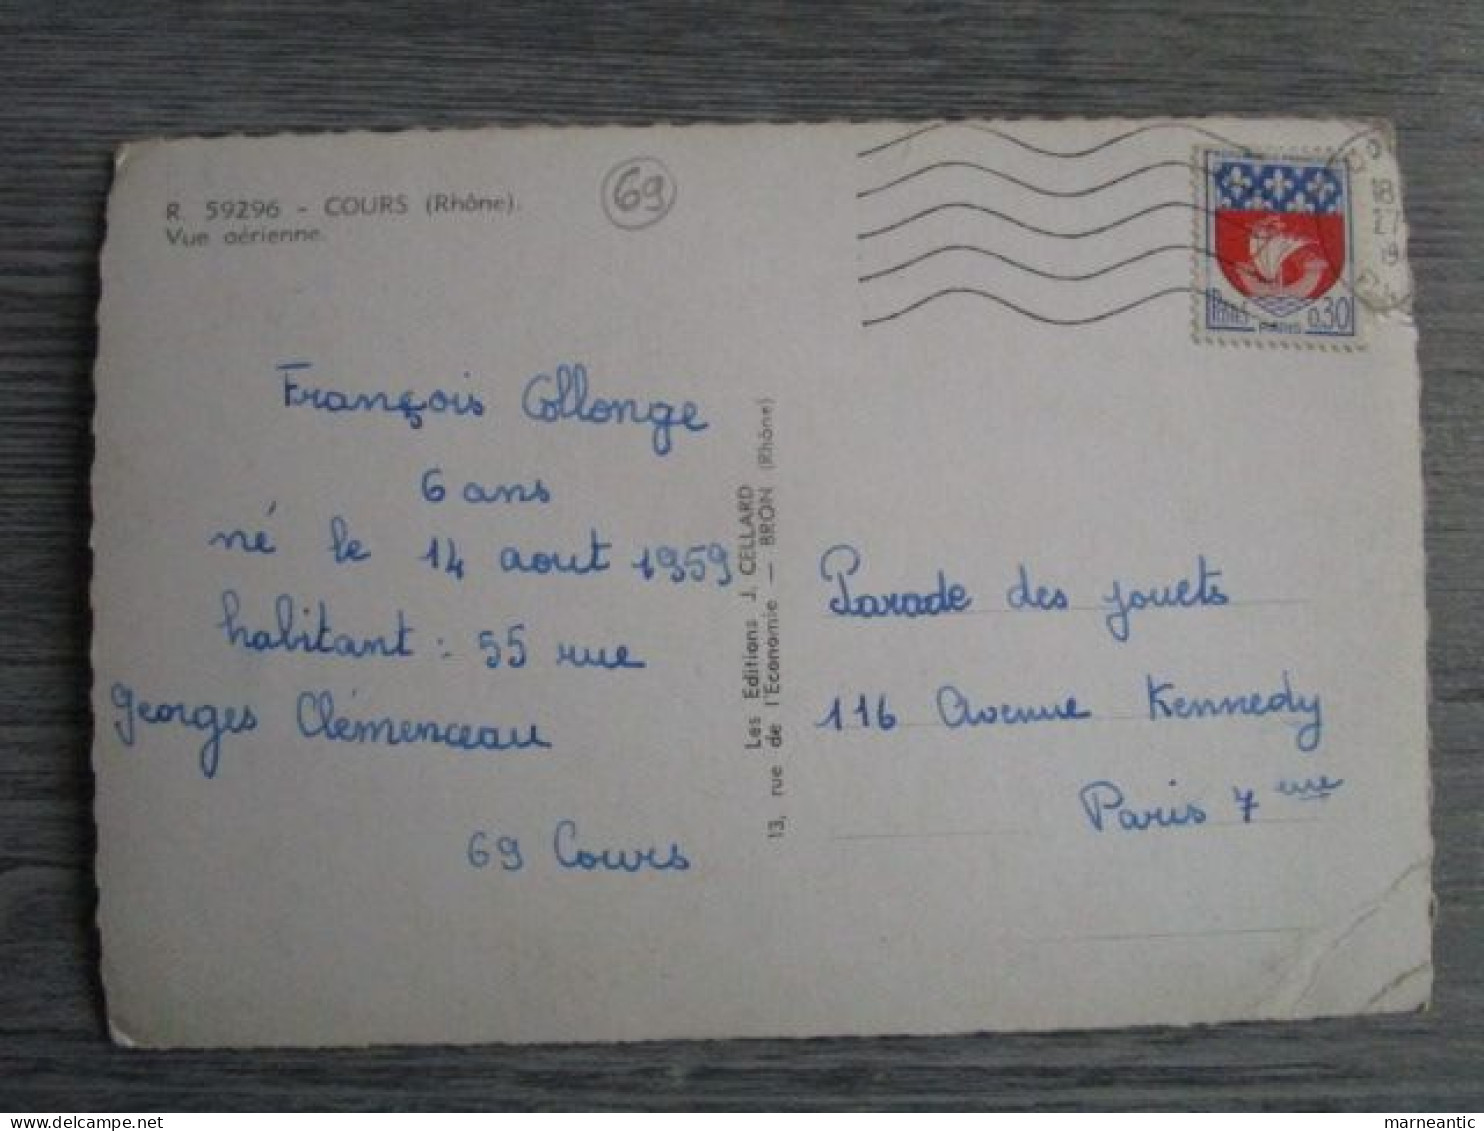 R. 59296 - COURS (Rhône).
Vue aérienne.
69
François Collonge
6 ans
né le 14 aout 1959
habitant : 55 rue
georges Clémenceau
69 Cours
Les Editions J. CELLARD
13, rue de l'Economie — BRON (Rhône)
PARIS
0,30
18
27
19
Parade des jouets
116 Avenue Kennedy
Paris 7 eme
marneantic